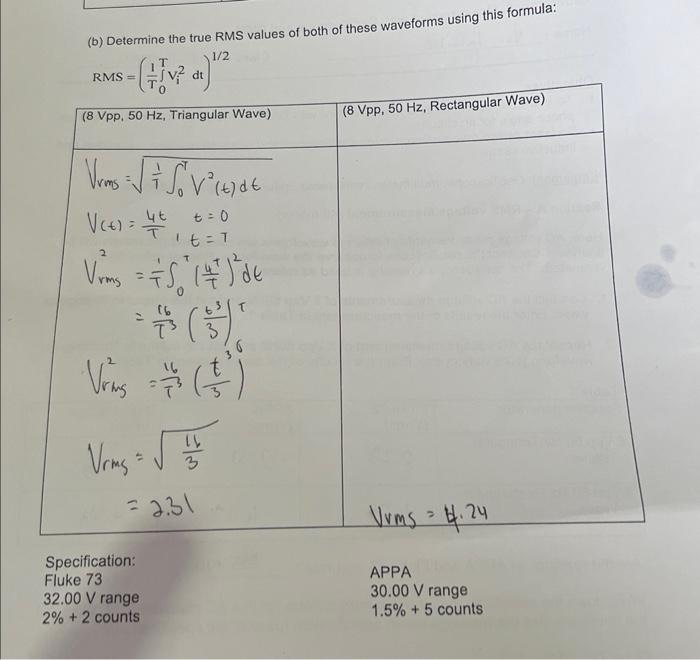 (b) Determine the true RMS values of both of these waveforms using this formula:
RMS = (1/T ∫₀ᵀ Vᵢ² dt)^1/2
(8 Vpp, 50 Hz, Triangular Wave)
(8 Vpp, 50 Hz, Rectangular Wave)
Vrms = √(1/T ∫₀ᵀ V²(t) dt)
V(t) = 4t/T t = 0
, t = T
V²rms = 1/T ∫₀ᵀ (4T/T)² dt
= 16/T³ (t³/3)ᵀ₀
V²rms = 16/T³ (t³/3)
Vrms = √(16/3)
= 2.31
Vrms = 4.24
Specification:
Fluke 73
32.00 V range
2% + 2 counts
APPA
30.00 V range
1.5% + 5 counts